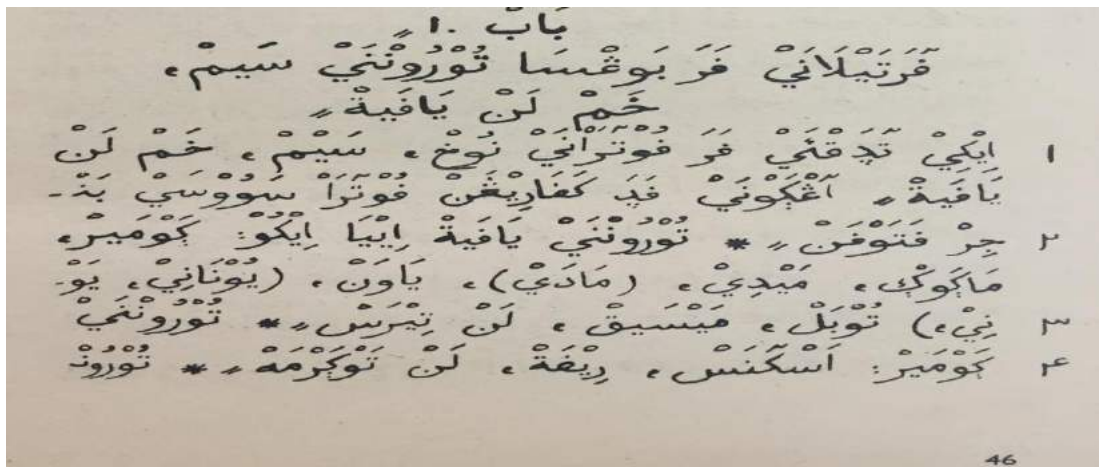 بَابْ .١
فَرْتَيْلَانَيْ فَرَ بَوڠْسَا تُوْرُوْنْنَيْ سَيمْ،
خَمْ لَنْ يَافَيةْ.
١ اِيْكِيْ فَرَ فُوْتْرَانَيْ نُوْحْ، سَيْمْ، خَمْ لَنْ
يَافَيةْ. فُوْتْرَا سَوُوْسَيْ بَنْـ
٢ جِرْ * تُوْرُوْنْنَيْ يَافَيةْ اِيْيَا اِيْكُوْ: ڮَوْمَيرْ،
مَاڮَوݢْ، مَيْدِيْ، (مَادَيْ)، يَاوَنْ، (يُوْنَانِيْ، يَوْ-
٣ نِيْ،) تُوْبَلْ، مَيْسَيقْ، لَنْ تِيْرَسْ. * تُوْرُوْنْنَيْ
٤ ڮَوْمَيرْ: اَسْكَنَسْ، رِيْفَةْ، لَنْ تَوْڮَرْمَهْ. * تُوْرُوْنْـ
46